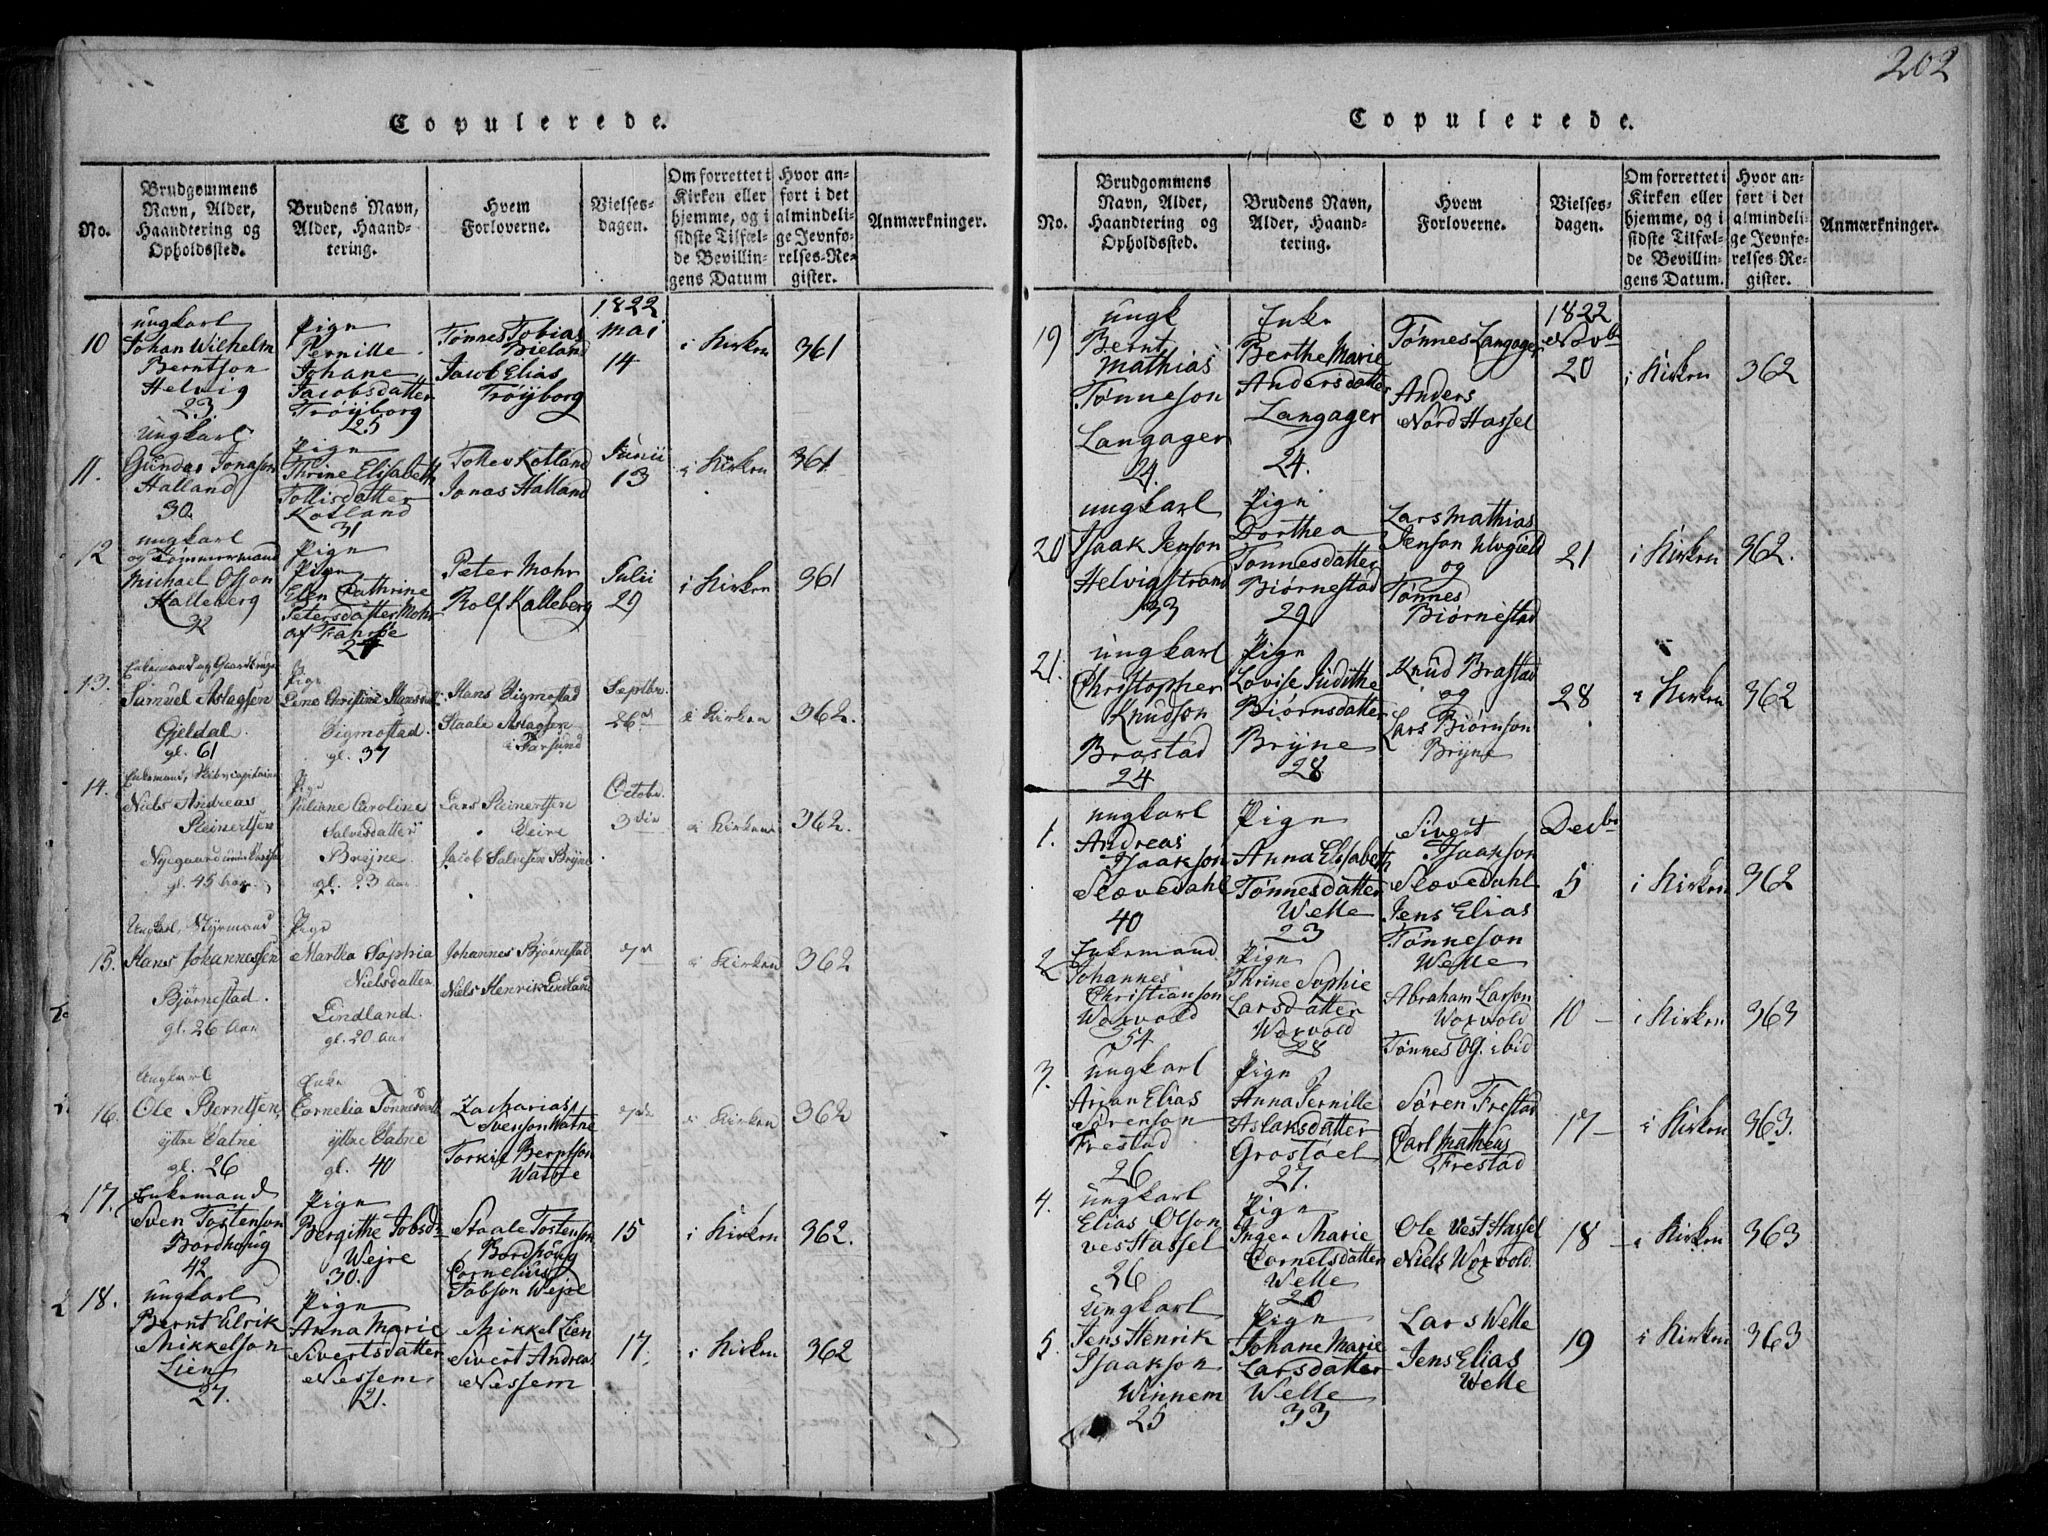 202
Copulerede.
No.
Brudgommens
Navn, Alder,
Haandtering og
Opholdssted.
Brudens Navn,
Alder, Haand-
tering.
Hvem
Forloverne.
Vielses-
dagen.
Om forrettet i
Kirken eller
hjemme, og i
sidste Tilfæl-
de Bevillin-
gens Datum
Hvor an-
ført i det
almindeli-
ge Jevnfø-
relses-Re-
gister.
Anmærkninger.
1822
10
ungkarl
Johan Wilhelm
Berntson
Helvig
23
Pige
Pernille
Johane
Jacobsdatter
Trøÿborg
25
Tønnes Tobias
Bieland
Jacob Elias
Trøÿborg
mai
14
i Kirken
361
11.
ungkarl
Gundar Jonason
Halland
30.
Pige
Thrine Elisabeth
Tollisdatter
Kotland
31
Tollev Kotland
Jonas Halland
Junii
13
i Kirken
361
12
ungkarl
og Tømmermand
Michael Olson
Kalleberg
32
Pige
Pige
Elen Cathrine
Petersdatter Mohr
af Farsøe
27
Peter Mohr
Rolf Kalleberg
Julii
29
i Kirken
361
13.
Enkemand og Gaardbruger
Samuel Aslagsen
Gjeldal
gl. 61
Pige
Lene Christine Hansdatt.
Sigmostad.
gl. 37
Hans Sigmostad
Staale Aslagsen
i Farsund
Septbr.
26de
i Kirken
362.
14.
Enkemand, Skibscapitaine
Niels Andreas
Steinertsen
Nyegaard under Vasse
gl. 45 Aar.
Pige
Juliane Caroline
Salvesdatter
Brÿne
gl. 23 Aar
Lars Steinertsen
Veire
Jacob Salvesen Brÿne
Octobr.
3die
i Kirken
362.
15.
Ungkarl, Styrmand
Hans Johannessen
Bjørnestad.
gl. 26 Aar
Pige
Martha Sophia
Nielsdatter
Lindland.
gl. 20 Aar
Johannes Bjørnestad
Niels Henrik Lindland
7de
i Kirken
362
16.
Ungkarl
Ole Berntsen
ÿttre Vatne
gl. 26
Enke
Cornelia Tønnesdatt
ÿttre Vatne
gl. 40
Zacharias
Svenson Watne
Torkil Berntson
Watne
7de
i Kirken
362
17.
Enkemand
Sven Tostenson
Bordhoug
42
Pige
Bergithe Jobsd
Wejre
30.
Staale Tostenson
Bordhoug
Cornelius
Jobson Wejre
15
i Kirken
362.
18.
ungkarl
Bernt Elrik
Mikkelson
Lien
27.
Pige
Anna Marie
Sivertsdatter
Nessem
21.
Mikkel Lien
Sivert Andreas
Nessem
17.
i Kirken
362
Copulerede.
No.
Brudgommens
Navn, Alder,
Haandtering og
Opholdssted.
Brudens Navn,
Alder, Haand-
tering.
Hvem
Forloverne.
Vielses-
dagen.
Om forrettet i
Kirken eller
hjemme, og i
sidste Tilfæl-
de Bevillin-
gens Datum.
Hvor an-
ført i det
almindeli-
ge Jevnfø-
relses-Re-
gister.
Anmærkninger.
1822
19
ungk
Bernt
Mathias
Tønneson
Langager
24.
Enke
Berthe Marie
Andersdatter
Langager
24.
Tønnes Langager
Anders
Nord Hassel
Novbr
20
i Kirken
362
20
ungkarl
Isaak Jenson
Helvigstrand
33
Pige
Dorthea
Tønnesdatter
Biørnestad
29
Lars Mathias
Jenson Ulvgield
og
Tønnes
Biørnestad
21
i Kirken
362.
21.
ungkarl
Christopher
Knudson
Brastad
24
Pige
Lovise Judithe
Biørnsdatter
Brÿne
28
Knud Brastad
og
Lars Biørnson
Brÿne
28
i Kirken
362
1.
ungkarl
Andreas
Isaakson
Slævedahl
40
Pige
Anna Elisabeth
Tønnesdatter
Welle
23
Sivert
Isaakson
Slævedahl
Jens Elias
Tønneson
Welle
Decbr
5
i Kirken
362
2
Enkemand
Johannes
Christianson
Woxvold
54
Pige
Thrine Sophie
Larsdatter
Woxvold
28
Abraham Larson
Woxvold
Tønnes Og. ibid
10
i Kirken
363
3.
ungkarl
Arian Elias
Sørenson
Frestad
26
Pige
Anna Pernille
Aslaksdatter
Grostøel
27.
Søren Frestad
Carl Matheus
Frestad
17
i Kirken
363.
4.
ungkarl
Elias Olson
vest Hassel
26
Pige
Inger Marie
Cornelsdatter
Welle
20
Ole Vest Hassel
Niels Woxvold.
18
i Kirken
363
5.
ungkarl
Jens Henrik
Isaakson
Winnem
25
Pige
Johane Marie
Larsdatter
Welle
33
Lars Welle
Jens Elias
Welle
19
i Kirken
363